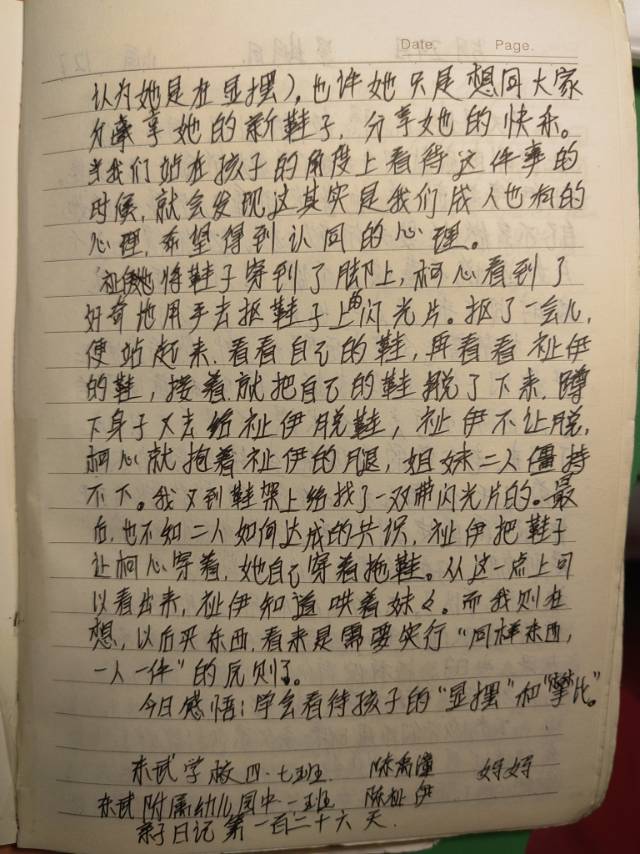 Date.
Page.
认为她是在显摆），也许她只是想同大家
分享她的新鞋子，分享她的快乐。
当我们站在孩子的角度上看待这件事的
时候，就会发现这其实是我们成人也有的
心理，希望得到认同的心理。
祉伊她将鞋子穿到了脚上，柯心看到了
好奇地用手去抠鞋子上的闪光片。抠了一会儿，
便站起来，看看自己的鞋，再看看祉伊
的鞋，接着就把自己的鞋脱了下来，蹲
下身子又去给祉伊脱鞋，祉伊不让脱，
柯心就抱着祉伊的腿，姐妹二人僵持
不下。我又到鞋架上给找了一双带闪光片的。最
后，也不知二人如何达成的共识，祉伊把鞋子
让柯心穿着，她自己穿着拖鞋。从这一点上可
以看出来，祉伊知道哄着妹々。而我则在
想，以后买东西，看来是需要实行“同样东西，
一人一件”的原则了。
今日感悟：学会看待孩子的“显摆”和“攀比”。
东武学校四·七班 陈禹潼 妈妈
东武附属幼儿园中一班 陈祉伊
亲子日记第一百二十六天.